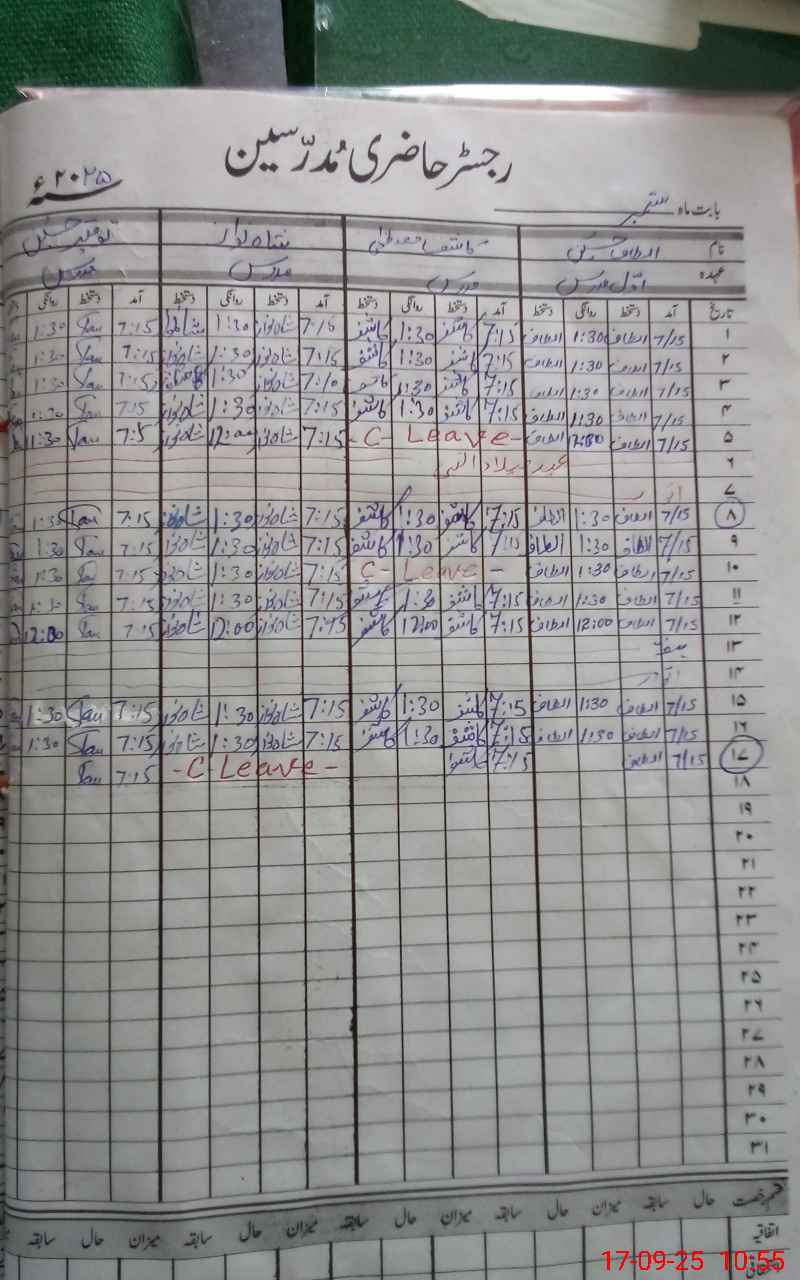 رجسٹر حاضری مُدرّسین
سنہ ۲۰۲۵ء
بابت ماہ ستمبر
نام الطاف حسین کاشف مصطفیٰ شاہ نواز توقیر حسین
عہدہ اوّل مدرس مدرس مدرس مدرس
تاریخ آمد دستخط روانگی دستخط آمد دستخط روانگی دستخط آمد دستخط روانگی دستخط آمد دستخط روانگی
۱ 7/15 الطاف 1:30 الطاف 7:15 کاشف 1:30 کاشف 7:15 شاہ نواز 1:30 شاہ نواز 7:15 1:30
۲ 7/15 الطاف 1:30 الطاف 7:15 کاشف 1:30 کاشف 7:15 شاہ نواز 1:30 شاہ نواز 7:15 1:30
۳ 7/15 الطاف 1:30 الطاف 7:15 کاشف 1:30 کاشف شاہ نواز 1:30 7:15 1:30
۴ 7/15 الطاف 1:30 الطاف 7:15 کاشف 1:30 کاشف 7:15 شاہ نواز 1:30 شاہ نواز 7:15 1:30
۵ 7/15 الطاف الطاف - C - Leave - 7:15 شاہ نواز 12:00 شاہ نواز 7:15 11:30
۶ عید میلاد النبی
۷ اتوار
۸ 7/15 الطاف 1:30 الطاف 7:15 کاشف 1:30 کاشف 7:15 شاہ نواز 1:30 شاہ نواز 7:15 1:30
۹ 7/15 الطاف 1:30 الطاف 7:15 کاشف 1:30 کاشف 7:15 شاہ نواز 1:30 شاہ نواز 7:15 1:30
۱۰ 7/15 الطاف 1:30 الطاف C - Leave - 7:15 شاہ نواز 1:30 شاہ نواز 7:15 1:30
۱۱ 7/15 الطاف 1:30 الطاف 7:15 کاشف 1:30 کاشف 7:15 شاہ نواز 1:30 شاہ نواز 7:15 1:30
۱۲ 7/15 الطاف 12:00 الطاف 7:15 کاشف 12:00 کاشف 7:15 شاہ نواز 12:00 شاہ نواز 7:15 12:00
۱۳ ہفتہ
۱۴ اتوار
۱۵ 7/15 الطاف 1:30 الطاف 7:15 کاشف 1:30 کاشف 7:15 شاہ نواز 1:30 شاہ نواز 7:15 1:30
۱۶ 7/15 الطاف 1:30 الطاف 7:15 کاشف 1:30 کاشف 7:15 شاہ نواز 1:30 شاہ نواز 7:15 1:30
۱۷ 7/15 الطاف 7:15 کاشف - C Leave - 7:15
۱۸
۱۹
۲۰
۲۱
۲۲
۲۳
۲۴
۲۵
۲۶
۲۷
۲۸
۲۹
۳۰
۳۱
قسم رخصت حال سابقہ میزان حال سابقہ میزان حال سابقہ میزان حال سابقہ
اتفاقیہ
17-09-25 10:55